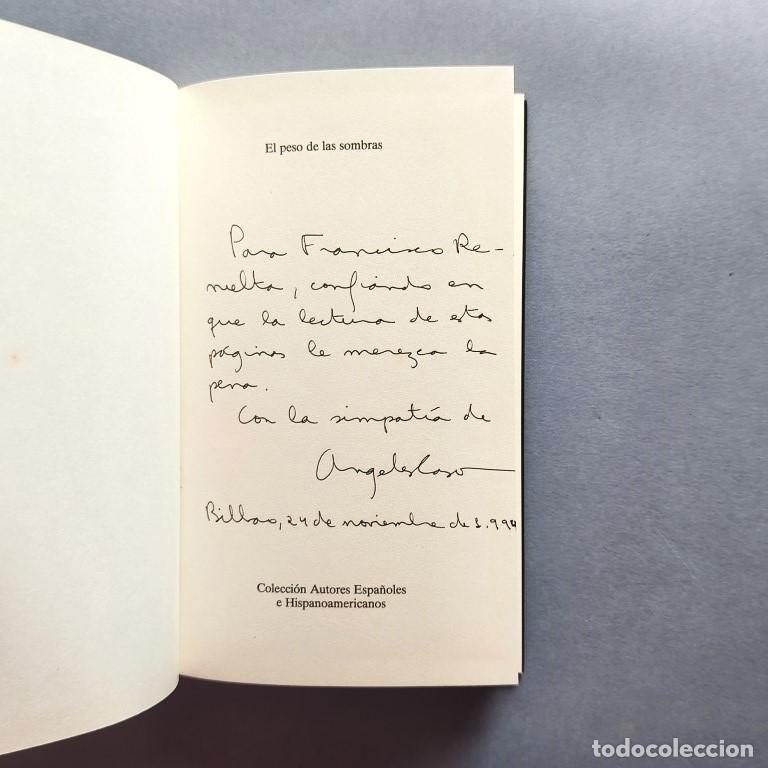 El peso de las sombras
Para Francisco Re-
vuelta, confiando en
que la lectura de estas
páginas le merezca la
pena.
Con la simpatía de
Angeles Caso
Bilbao, 24 de noviembre de 1.994
Colección Autores Españoles
e Hispanoamericanos
todocoleccion